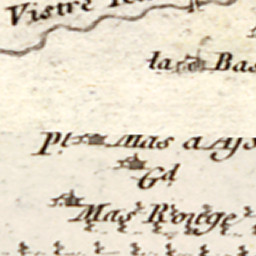 Vistre
la Bas
pt. Mas a Ays
Gd.
Mas Rouge